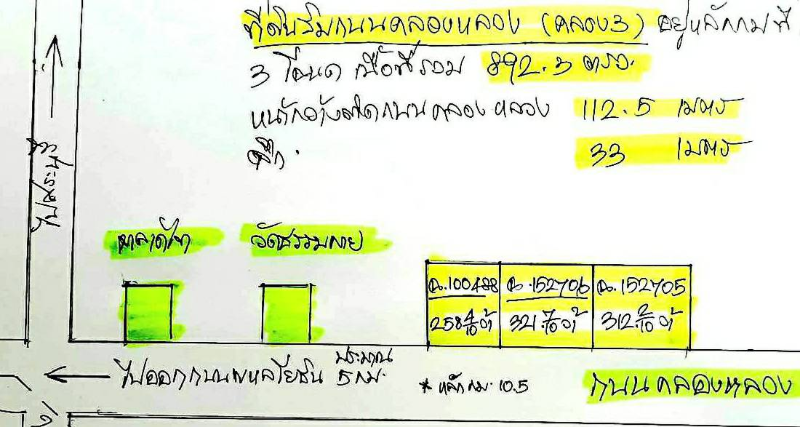 ที่ดินริมถนนคลองหลวง (คลอง3) อยู่หลักกม ที่
3 โฉนด เนื้อที่รวม 892.3 ตรว.
หน้ากว้างติดถนนคลองหลวง 112.5 เมตร
ลึก. 33 เมตร
ไปสระบุรี
ตลาดไท วัดธรรมกาย
ฉ.100488 ฉ.152706 ฉ.152705
258 4/10 วา 321 7/10 วา 312 2/10 วา
ไปออกถนนพหลโยธิน ประมาณ 5 กม.
* หลักกม. 10.5
ถนนคลองหลวง